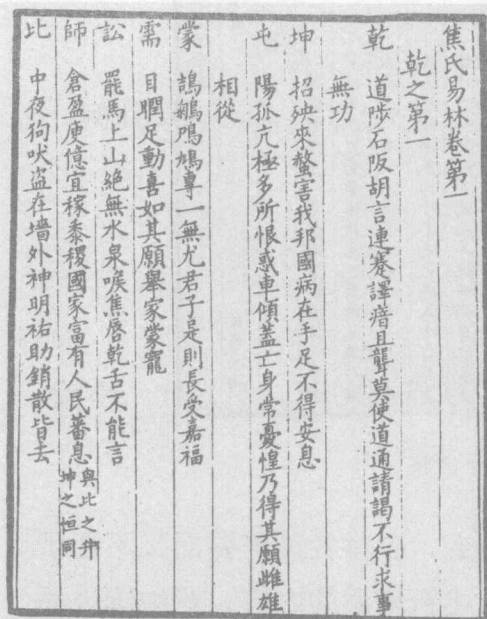 焦氏易林卷第一
乾之第一
乾 道陟石阪胡言連蹇譯瘖且聾莫使道通請謁不行求事
無功
坤 招殃來螫害我邦國病在手足不得安息
屯 陽孤亢極多所恨惑車傾蓋亡身常憂惶乃得其願雌雄
相從
蒙 鵠鵴鳲鳩專一無尤君子是則長受嘉福
需 目瞤足動喜如其願舉家蒙寵
訟 罷馬上山絕無水泉喉焦唇乾舌不能言
師 倉盈庾億宜稼黍稷國家富有人民蕃息 與比之升
坤之恒同
比 中夜狗吠盜在墻外神明祐助銷散皆去